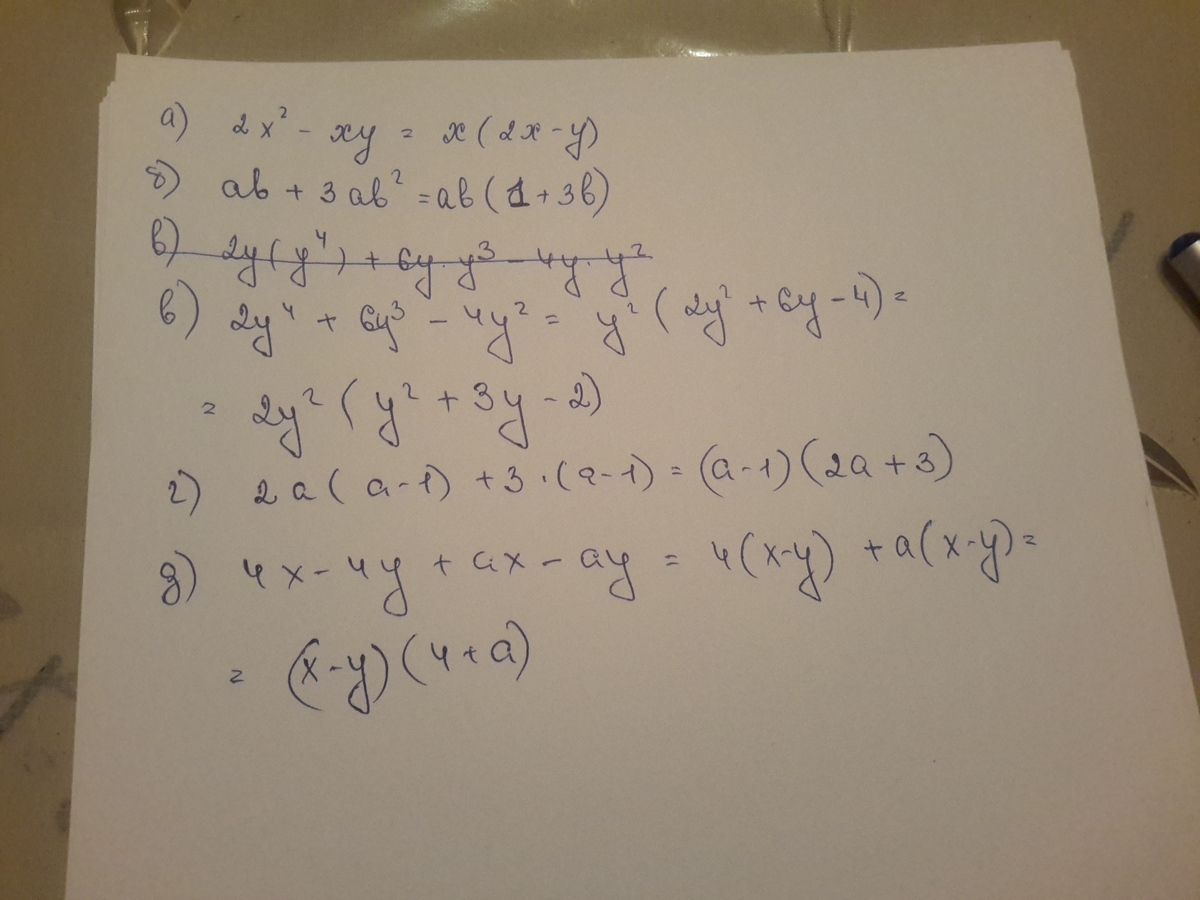 а) 2x² - xy = x(2x-y)
б) ab + 3ab² = ab(1+3b)
в) 2y(y⁴) + 6y·y³ - 4y·y²
в) 2y⁴ + 6y³ - 4y² = y²(2y² + 6y - 4) =
= 2y²(y² + 3y - 2)
г) 2a(a-1) + 3·(a-1) = (a-1)(2a+3)
д) 4x - 4y + ax - ay = 4(x-y) + a(x-y) =
= (x-y)(4+a)